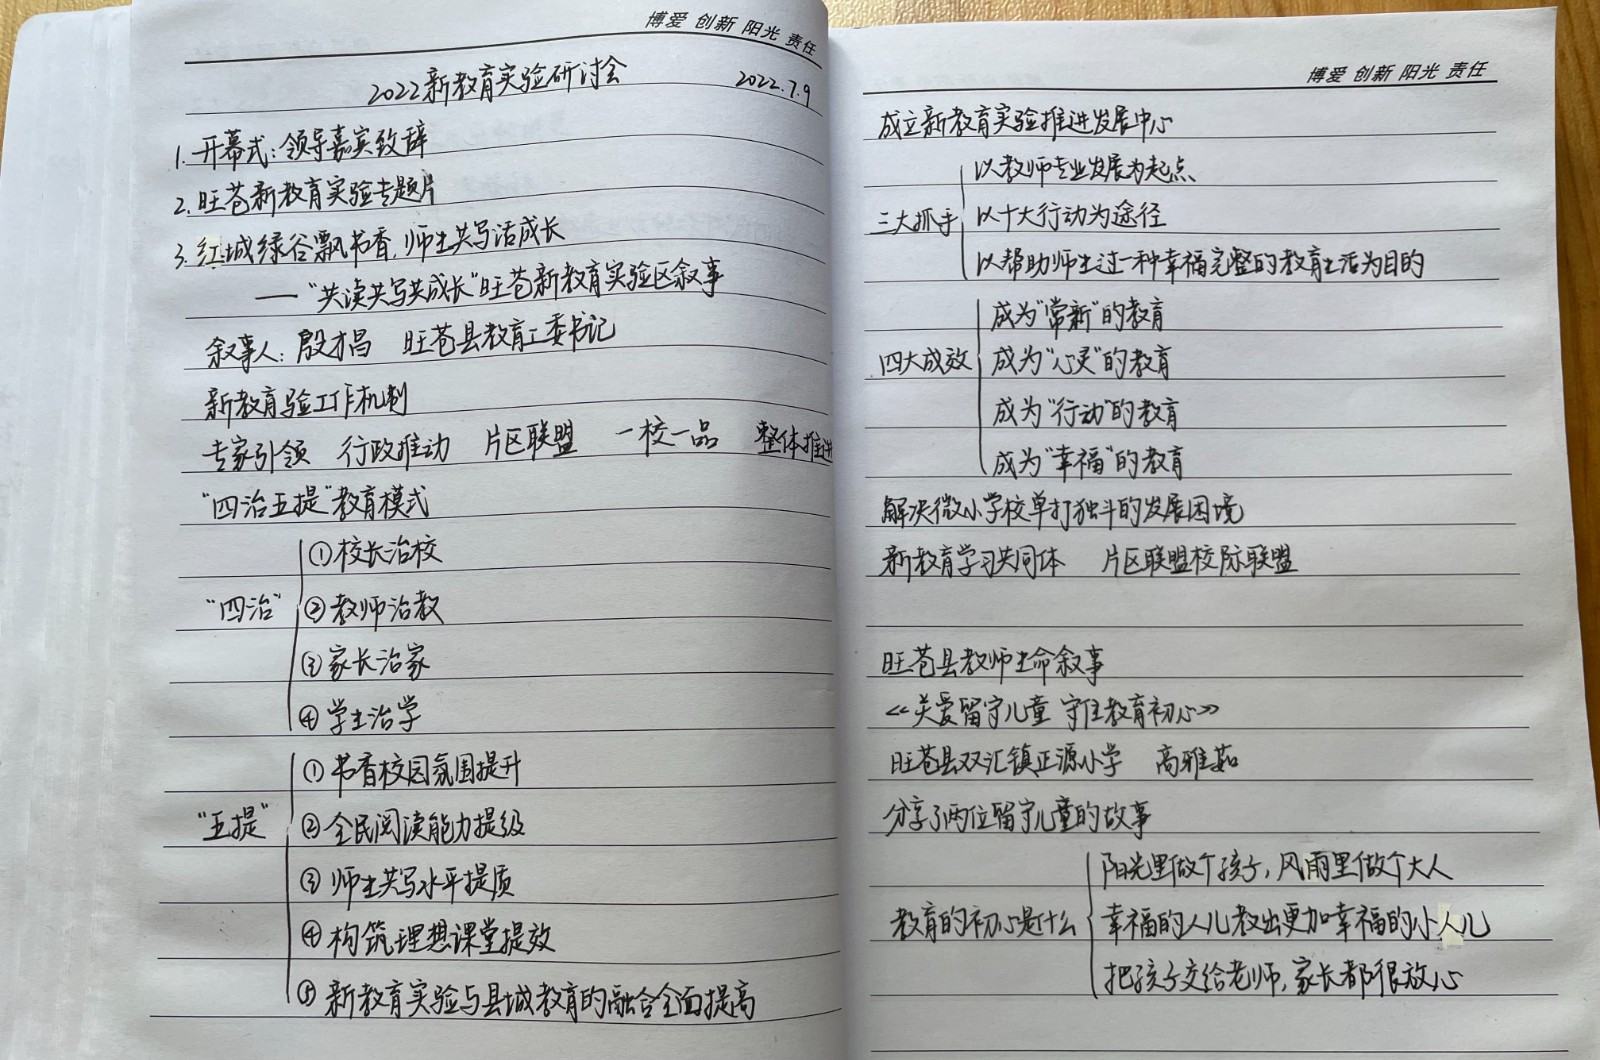 博爱 创新 阳光 责任
2022新教育实验研讨会 2022.7.9
1.开幕式:领导嘉宾致辞
2.旺苍新教育实验专题片
3.红城绿谷飘书香,师生共写话成长
——“共读共写共成长”旺苍新教育实验区叙事
叙事人:殷才昌 旺苍县教育工委书记
新教育验工作机制
专家引领 行政推动 片区联盟 一校一品 整体推进
“四治五提”教育模式
①校长治校
“四治” ②教师治教
③家长治家
④学生治学
①书香校园氛围提升
“五提” ②全民阅读能力提级
③师生共写水平提质
④构筑理想课堂提效
⑤新教育实验与县域教育的融合全面提高
博爱 创新 阳光 责任
成立新教育实验推进发展中心
以教师专业发展为起点
三大抓手 以十大行动为途径
以帮助师生过一种幸福完整的教育生活为目的
成为“常新”的教育
四大成效 成为“心灵”的教育
成为“行动”的教育
成为“幸福”的教育
解决微小学校单打独斗的发展困境
新教育学习共同体 片区联盟校际联盟
旺苍县教师生命叙事
《关爱留守儿童 守住教育初心》
旺苍县双汇镇正源小学 高雅茹
分享了两位留守儿童的故事
阳光里做个孩子,风雨里做个大人
教育的初心是什么 幸福的人儿教出更加幸福的小人儿
把孩子交给老师,家长都很放心